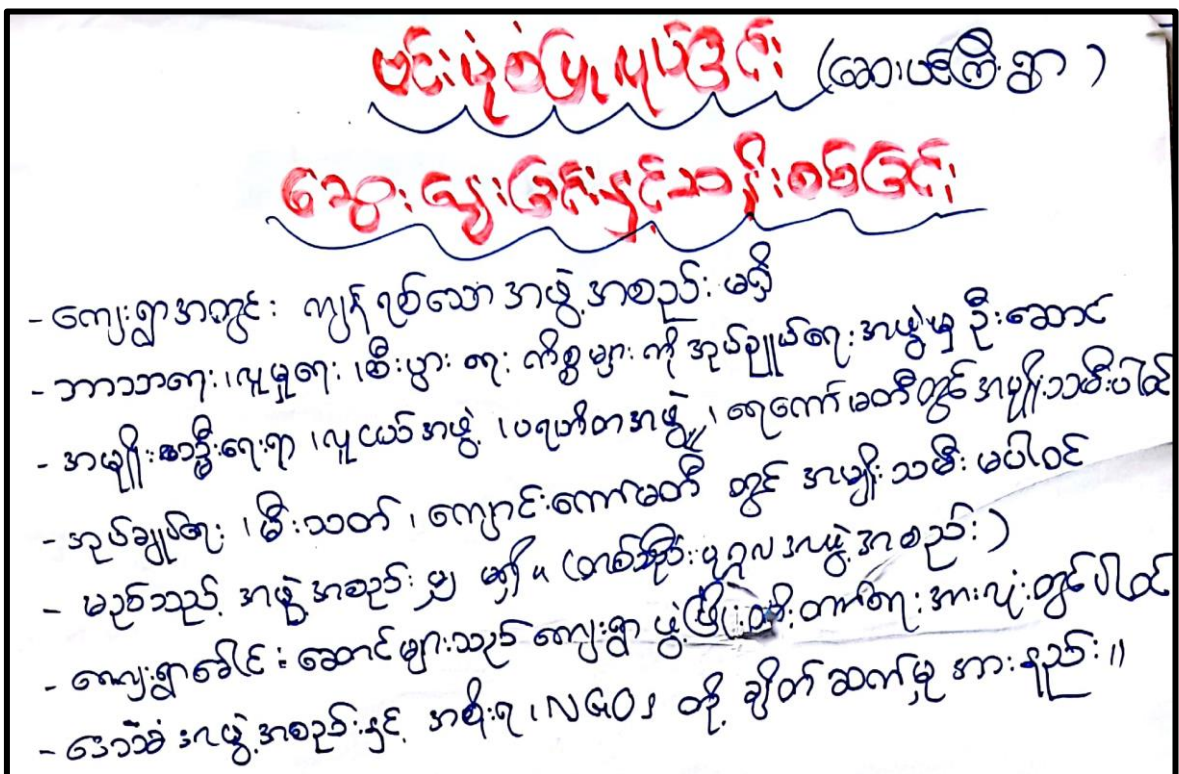 ဗင်းပုံစံပြုလုပ်ခြင်း (ဆေးပင်ကြီးရွာ)
ဆွေးနွေးခြင်းနှင့်ဆန်းစစ်ခြင်း
- ကျေးရွာအတွင်း ကျန်ရစ်သော အဖွဲ့အစည်း မရှိ
- ဘာသာရေး၊ လူမှုရေး၊ စီးပွားရေး ကိစ္စများကို အုပ်ချုပ်ရေးအဖွဲ့မှ ဦးဆောင်
- အမျိုးသမီးရေးရာ၊ လူငယ်အဖွဲ့၊ ပရဟိတအဖွဲ့၊ ရေကော်မတီတွင် အမျိုးသမီးပါဝင်
- အုပ်ချုပ်ရေး၊ မီးသတ်၊ ကျောင်းကော်မတီ တွင် အမျိုးသမီး မပါဝင်
- မည်သည့် အဖွဲ့အစည်းမျှ မရှိ။ (တစ်သီးပုဂ္ဂလအဖွဲ့အစည်း)
- ကျေးရွာခေါင်းဆောင်များသည် ကျေးရွာ ဖွံ့ဖြိုးတိုးတက်ရေး အားလုံးတွင်ပါဝင်
- ဒေသခံ အဖွဲ့အစည်းနှင့် အစိုးရ၊ NGOs တို့ ချိတ်ဆက်မှု အားနည်း။